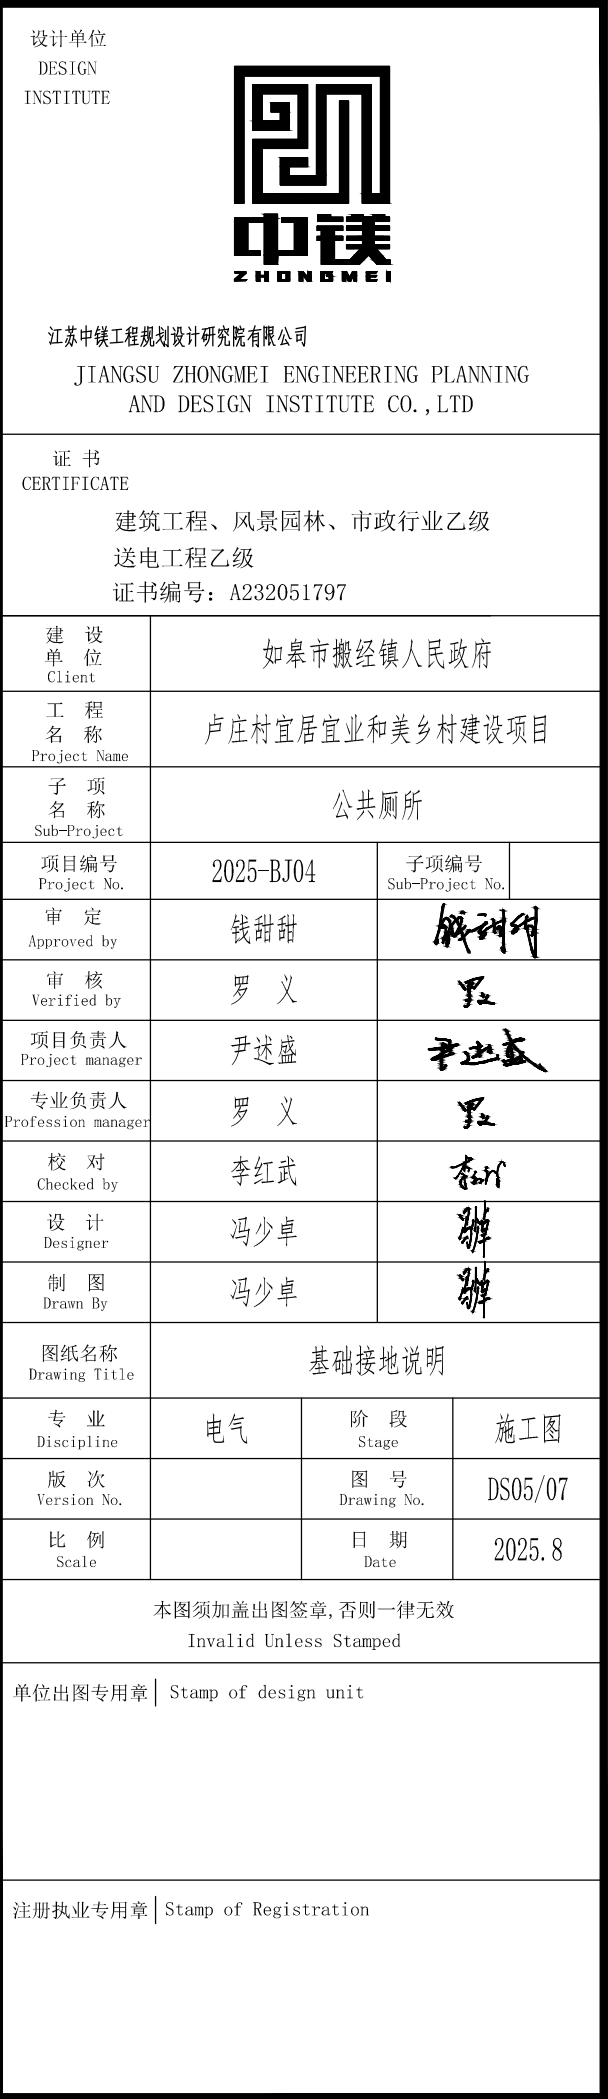 设计单位
DESIGN
INSTITUTE
中镁
ZHONGMEI
江苏中镁工程规划设计研究院有限公司
JIANGSU ZHONGMEI ENGINEERING PLANNING
AND DESIGN INSTITUTE CO.,LTD
证 书
CERTIFICATE
建筑工程、风景园林、市政行业乙级
送电工程乙级
证书编号：A232051797
建 设
单 位
Client
如皋市搬经镇人民政府
工 程
名 称
Project Name
卢庄村宜居宜业和美乡村建设项目
子 项
名 称
Sub-Project
公共厕所
项目编号
Project No.
2025-BJ04
子项编号
Sub-Project No.
审 定
Approved by
钱甜甜
钱甜甜
审 核
Verified by
罗 义
罗义
项目负责人
Project manager
尹述盛
尹述盛
专业负责人
Profession manager
罗 义
罗义
校 对
Checked by
李红武
设 计
Designer
冯少卓
制 图
Drawn By
冯少卓
图纸名称
Drawing Title
基础接地说明
专 业
Discipline
电气
阶 段
Stage
施工图
版 次
Version No.
图 号
Drawing No.
DS05/07
比 例
Scale
日 期
Date
2025.8
本图须加盖出图签章,否则一律无效
Invalid Unless Stamped
单位出图专用章 Stamp of design unit
注册执业专用章 Stamp of Registration